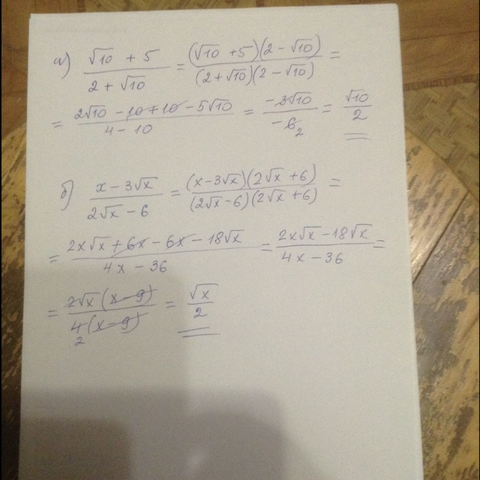 а) (√10 + 5)/(2 + √10) = ((√10 + 5)(2 − √10))/((2 + √10)(2 − √10)) =
= (2√10 − 10 + 10 − 5√10)/(4 − 10) = (−3√10)/(−6 2) = √10/2
б) (x − 3√x)/(2√x − 6) = ((x − 3√x)(2√x + 6))/((2√x − 6)(2√x + 6)) =
= (2x√x + 6x − 6x − 18√x)/(4x − 36) = (2x√x − 18√x)/(4x − 36) =
= (2√x (x − 9))/(4 2 (x − 9)) = √x/2